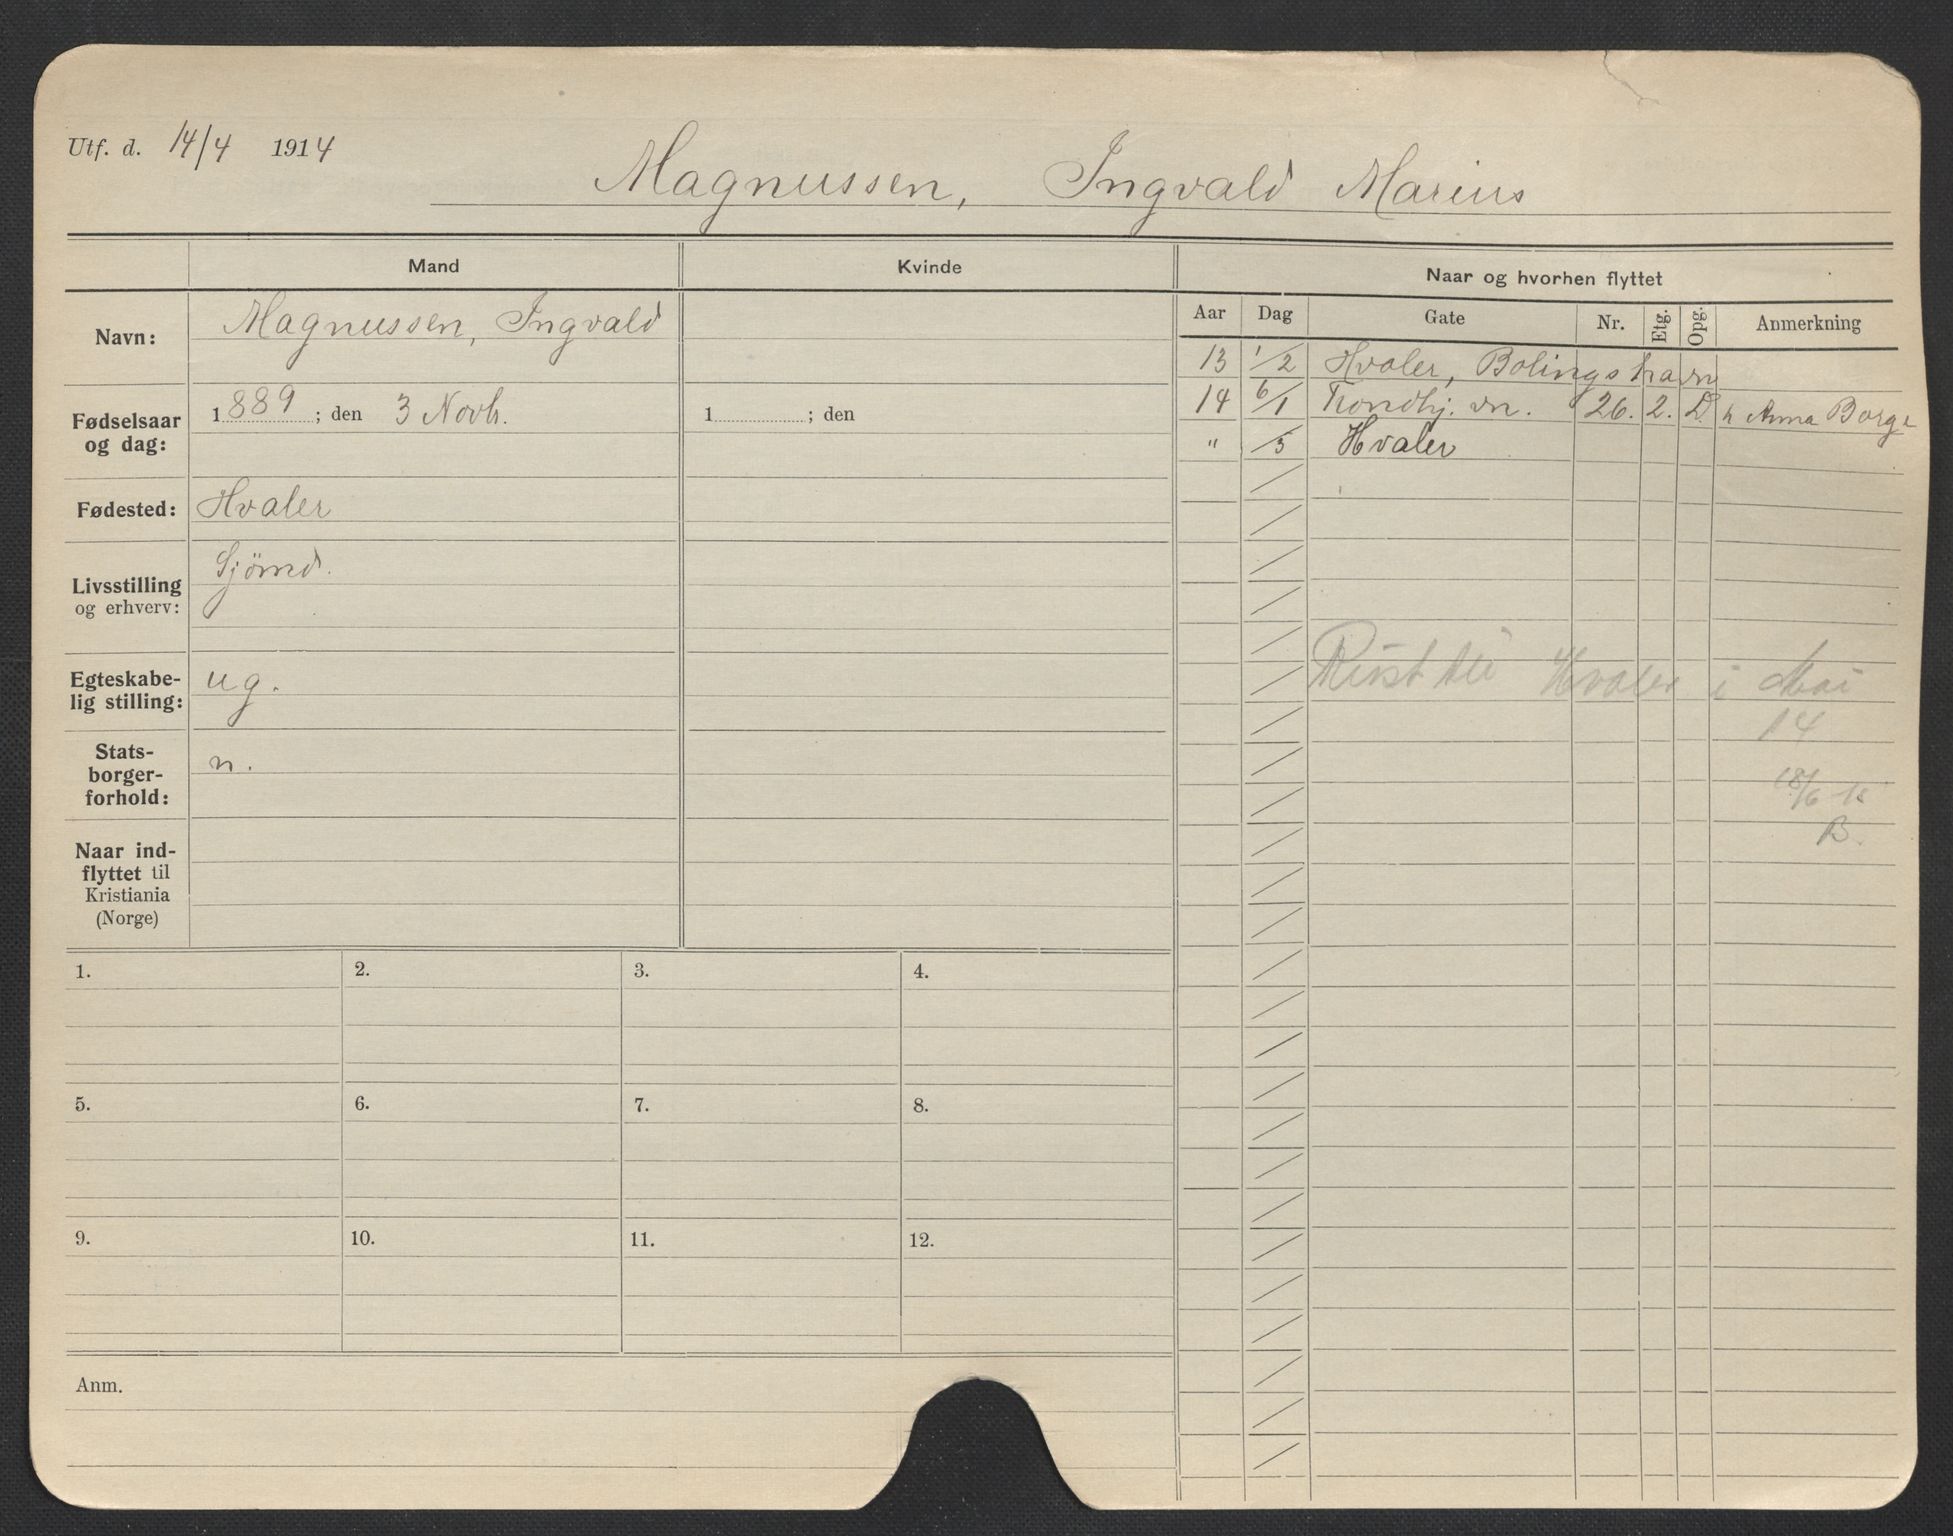 Utf. d. 14/4 1914
Magnussen, Ingvald Marius
Mand
Kvinde
Navn:
Magnussen, Ingvald
Fødselsaar og dag:
1889; den 3 Novb.
1 ; den
Fødested:
Hvaler
Livsstilling og erhverv:
Sjömd.
Egteskabe-
lig stilling:
ug.
Stats-
borger-
forhold:
n.
Naar ind-
flyttet til
Kristiania
(Norge)
1. 2. 3. 4.
5. 6. 7. 8.
9. 10. 11. 12.
Anm.
Naar og hvorhen flyttet
Aar Dag Gate Nr. Etg. Opg. Anmerkning
13 1/2 Hvaler, Bolingshavn
14 6/1 Trondhj. vn. 26. 2. D. h Anna Borge
" /5 Hvaler
Reist til Hvaler i Mai
14
18/6 15
B.